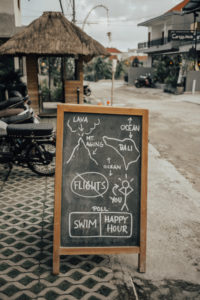 LAVA
OCEAN
MT. AGUNG
BALI
OCEAN
FLIGHTS
YOU
POLL
SWIM
HAPPY
HOUR